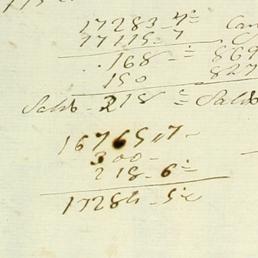 17283-7 Can
17115-7
168 - 869
150 827
Saldo - 218 = Saldo
16765,,7-
300-
218-6
17284-5